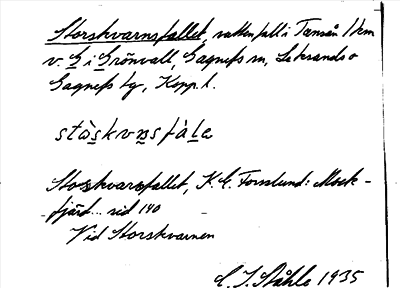 Storskvarnsfallet, vattenfall i Tansån 1 km
v. G i Grönvall, Gagnefs sn, Leksands o
Gagnefs tg, Kopp. l.
stòskvṇsfàle
Storskvarnsfallet, K. E. Forslund: Mock-
fjärd... sid 140
Vid Storskvarnen
C. I. Ståhle 1935